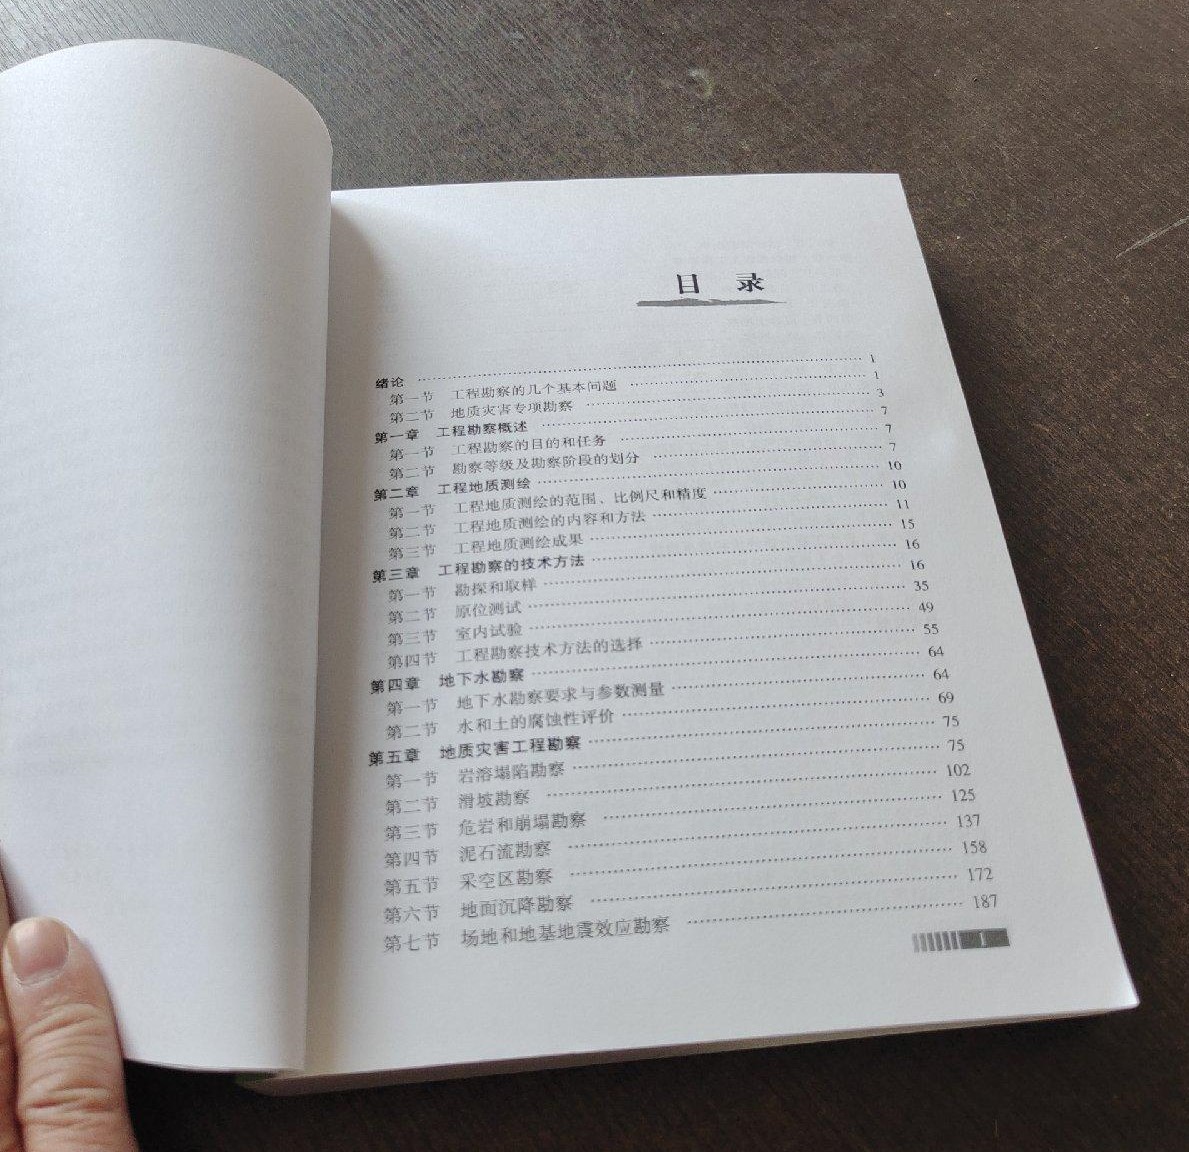 目 录
绪论 …… 1
第一节 工程勘察的几个基本问题 …… 1
第二节 地质灾害专项勘察 …… 3
第一章 工程勘察概述 …… 7
第一节 工程勘察的目的和任务 …… 7
第二节 勘察等级及勘察阶段的划分 …… 7
第二章 工程地质测绘 …… 10
第一节 工程地质测绘的范围、比例尺和精度 …… 10
第二节 工程地质测绘的内容和方法 …… 11
第三节 工程地质测绘成果 …… 15
第三章 工程勘察的技术方法 …… 16
第一节 勘探和取样 …… 16
第二节 原位测试 …… 35
第三节 室内试验 …… 49
第四节 工程勘察技术方法的选择 …… 55
第四章 地下水勘察 …… 64
第一节 地下水勘察要求与参数测量 …… 64
第二节 水和土的腐蚀性评价 …… 69
第五章 地质灾害工程勘察 …… 75
第一节 岩溶塌陷勘察 …… 75
第二节 滑坡勘察 …… 102
第三节 危岩和崩塌勘察 …… 125
第四节 泥石流勘察 …… 137
第五节 采空区勘察 …… 158
第六节 地面沉降勘察 …… 172
第七节 场地和地基地震效应勘察 …… 187
I